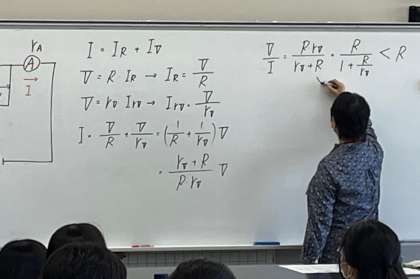 r_A
A
I
I = I_R + I_V
V = R I_R → I_R = V/R
V = r_V I_{rV} → I_{rV} = V/r_V
I = V/R + V/r_V = (1/R + 1/r_V) V
= (r_V + R)/(R r_V) V
V/I = R r_V/(r_V + R) = R/(1 + R/r_V) < R